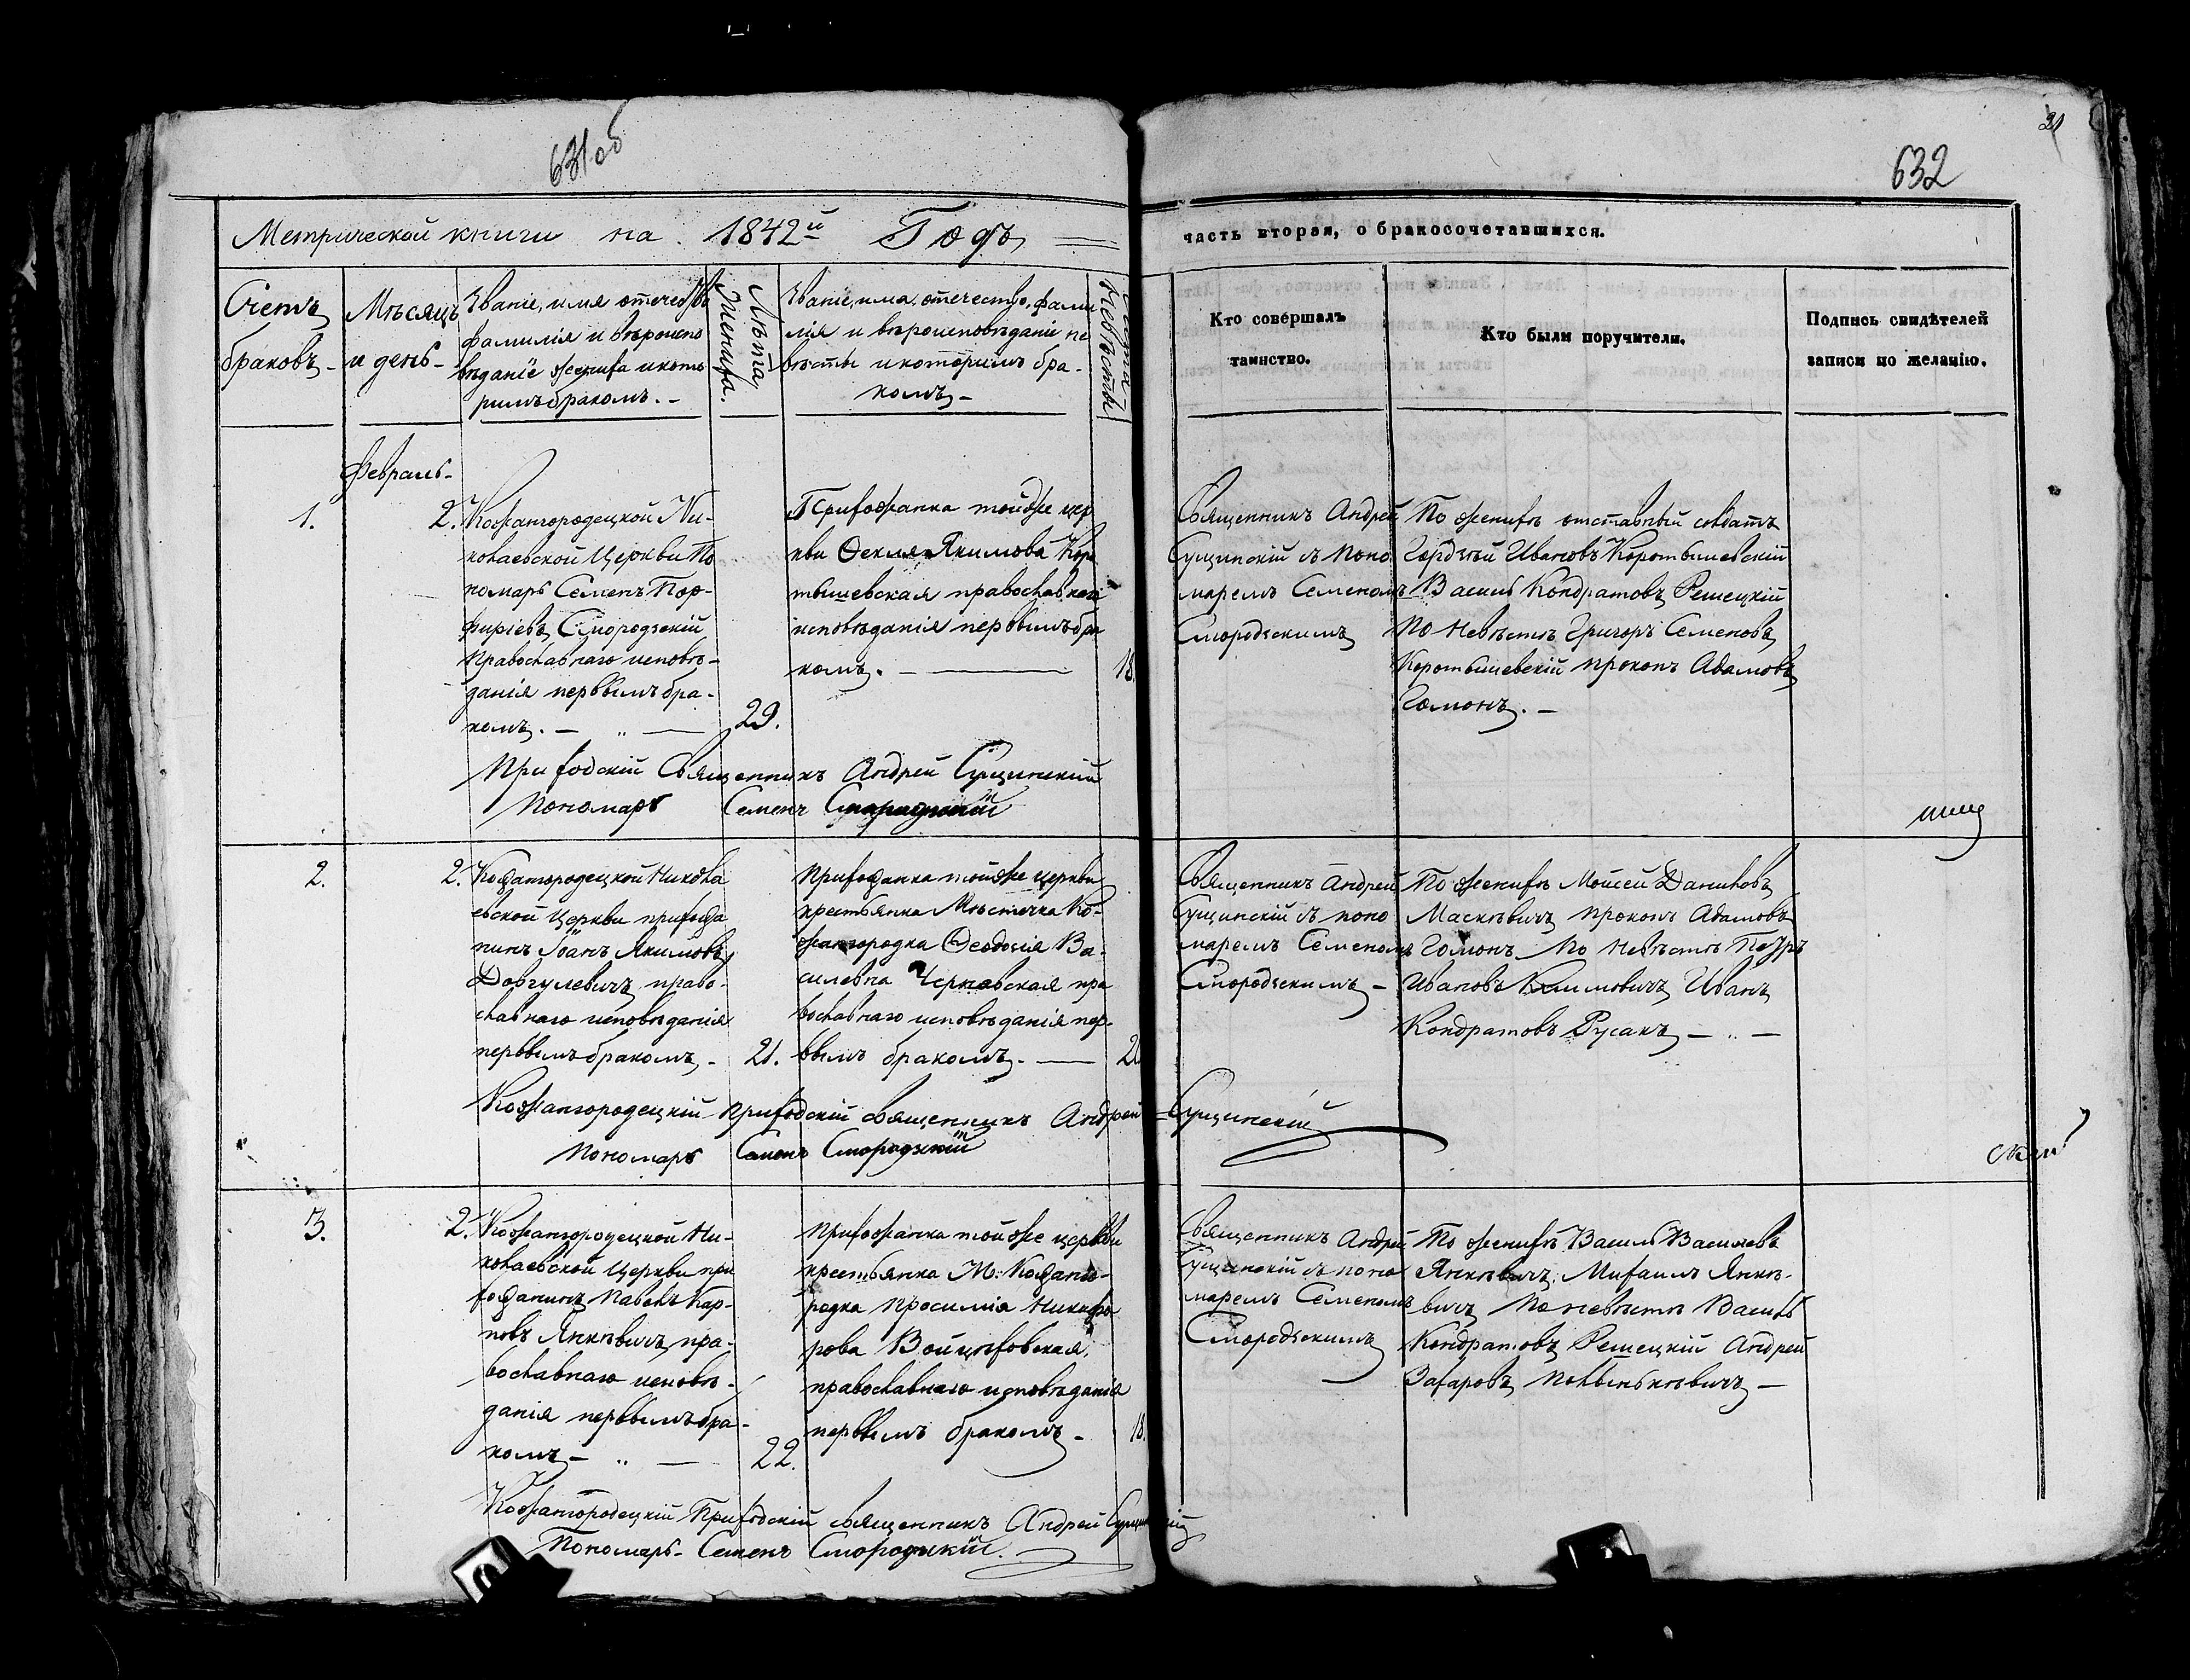 631 об
31
632
Метрической книги на 1842й Годъ
часть вторая, о бракосочетавшихся.
Счетъ
браковъ
Мѣсяцъ
и день
Званіе, имя отечество
фамилія и вѣроиспо
вѣданіе жениха и кото
римъ бракомъ.
Лѣта
Жениха.
Званіе, има, отечество, фами
лія и вѣроисповѣданіе не
вѣсты и которимъ бра-
комъ
Лѣта
Невѣсты
Кто совершалъ
таинство.
Кто были поручители.
Подпись свидѣтелей
записи по желанію.
Февраль
1.
2.
Кожангородецкой Ни-
колаевской Церкви По
номарь Семенъ Пор-
фиріевъ Смородзскій
Православнаго исповѣ-
данія первымъ бра-
комъ.
29.
Прихожанка тойже цер
кви Ѳекля Якимова Коро
тышевская православнаго
исповѣданія первымъ бра
комъ.
18.
Священникъ Андрей
Сущинскій съ поно
маремъ Семеномъ
Смородзскимъ
По женихѣ отставный солдатъ
Гордѣй Ивановъ Коротышевскій
Василь Кондратовъ Решецкій
По Невѣстѣ Григорь Семеновъ
Коротышевскій прокопъ Адамовъ
Гомонъ.
Приходскій Священникъ Андрей Сущинскій
Пономарь Семенъ
2.
2.
Кожангородецкой Никола
евской Церкви прихожа
нинъ Іоанъ Якимовъ
Довгулевичъ право-
славнаго исповѣданія
первымъ бракомъ
21.
Прихожанка тойже церкви
крестьянка Мѣстечка Ко-
жангородка Ѳеодосія Ва-
силевна Чернавская пра
вославнаго исповѣданія пер-
вымъ бракомъ.
Священникъ Андрей
Сущинскій съ поно
маремъ Семеномъ
Смородзскимъ
По женихѣ Мойсей Даниловъ
Маскѣвичъ прокопъ Адамовъ
Гомонъ По Невѣстѣ Петръ
Ивановъ Климовичъ Иванъ
Кондратовъ Русакъ
Кожангородецкій приходскій священникъ Андрей Сущинскій
Пономарь Семенъ Смородзскій
3.
2.
Кожангородецкой Ни-
колаевской Церкви при
хожанинъ Павелъ Кар-
повъ Янкѣвичъ пра-
вославнаго исповѣ-
данія первымъ бра-
комъ
22.
Прихожанка тойже церкви
крестьянка М. Кожанго-
родка Просимія Никифо
рова Войцѣховская
православнаго исповѣданія
первымъ бракомъ
18.
Священникъ Андрей
Сущинскій съ поно
маремъ Семеномъ
Смородзскимъ
По женихѣ Василь Василевъ
Янкѣвичъ, Михаилъ Янкѣ-
вичъ По невѣстѣ Василь
Кондратовъ Решецкій Андрей
Захаровъ Полынькѣвичъ
Кожангородецкій Приходскій священникъ Андрей Сущинскій
Пономарь Семенъ Смородзскій.